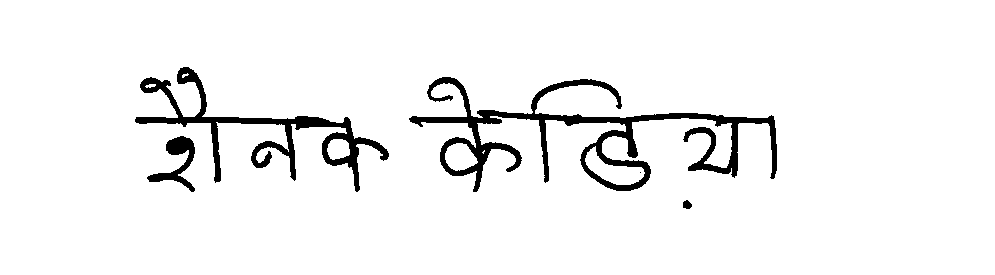 शैनक केडिय़ा